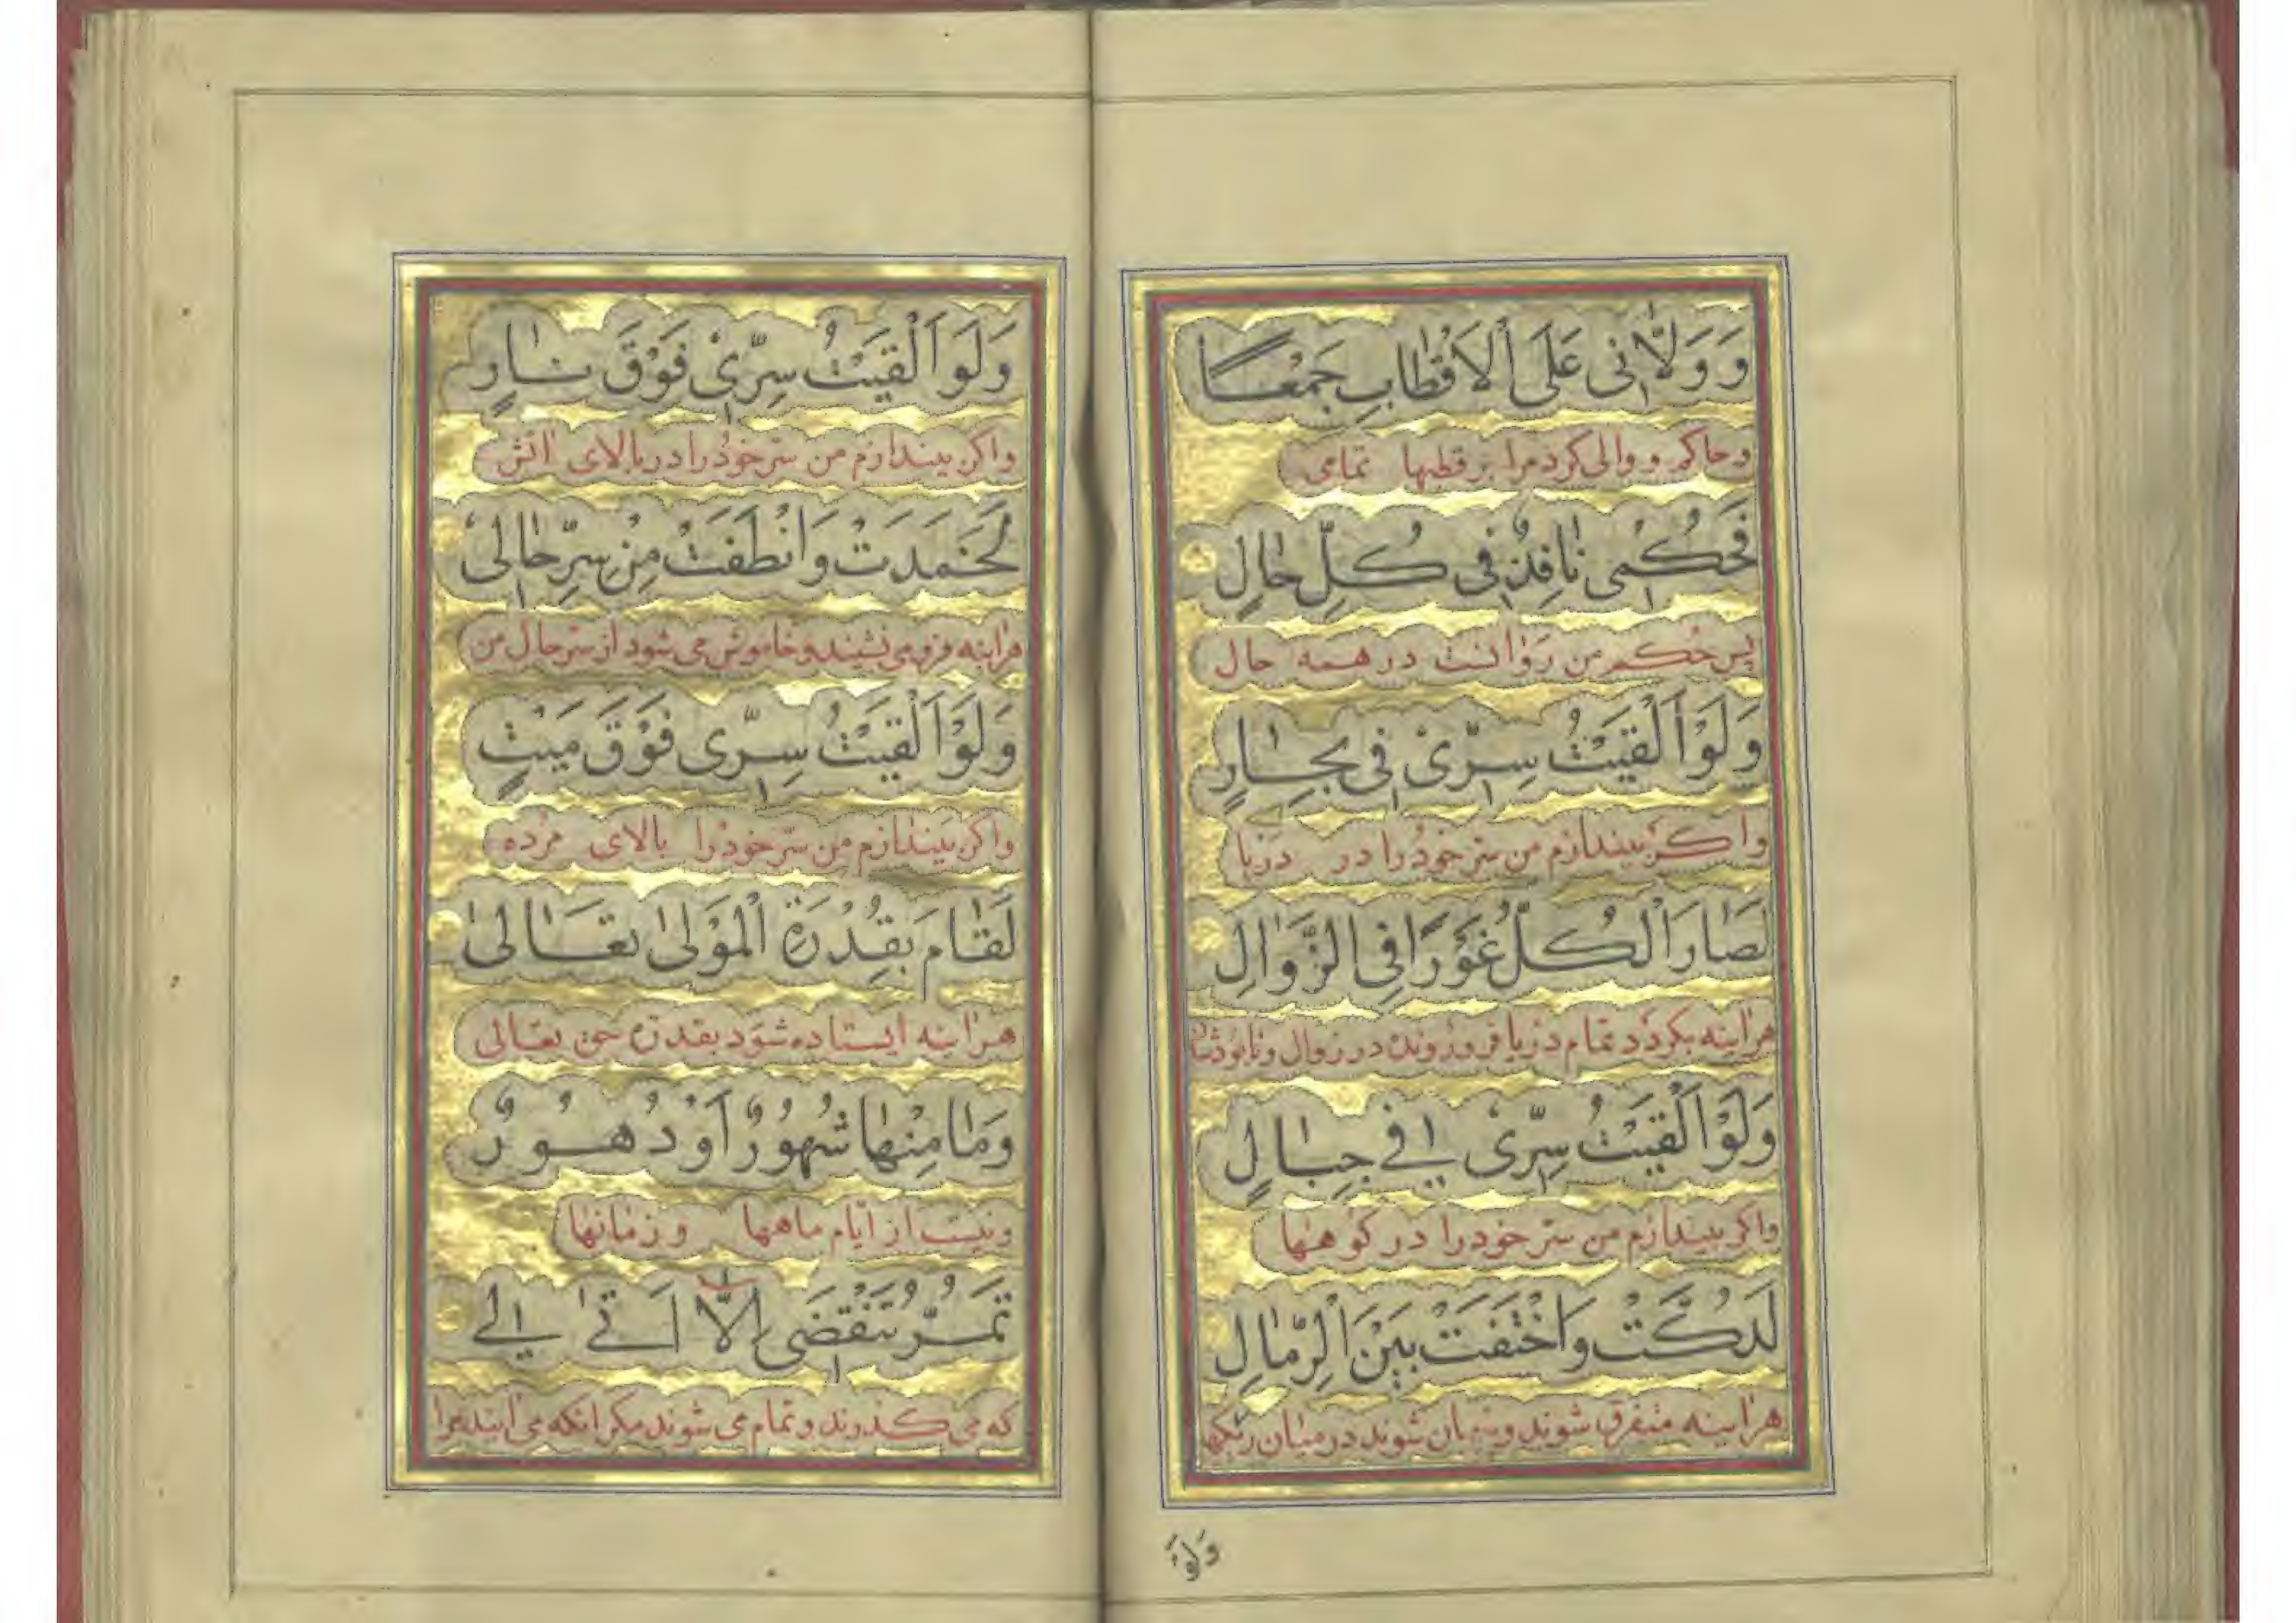 وَوَلَّانِی عَلَی الْاَقْطَابِ جَمْعًا
و حاکم و والی کرد مرا بر قطبها تمامی
فَحُکْمِی نَافِذٌ فِی کُلِّ حَالٍ
پس حُکم من رَوانست در همه حال
وَلَوْ اَلْقَیْتُ سِرِّیْ فِی بِحَارٍ
واکر بیندازم من سرّ خودرا در دریا
لَصَارَ الْکُلُّ غَوْرًا فِی الزَّوَالِ
هراینه بکردد تمام دریا فرورونده در زوال و نابود
وَلَوْ اَلْقَیْتُ سِرِّیْ فِے جِبَالٍ
واکر بیندازم من سرّ خودرا در کوهها
لَدُکَّتْ وَاخْتَفَتْ بَیْنَ الرِّمَالِ
هراینه متفرق شوند و پنهان شوند در میان ریکها
وَلَوْ
وَلَوْ اَلْقَیْتُ سِرِّیْ فَوْقَ نَارٍ
واکر بیندازم من سرّ خودرا در بالای اتش
لَخَمَدَتْ وَانْطَفَتْ مِنْ سِرِّ حَالِیْ
هراینه فرو می نشیند و خاموش می شود از سرّ حال من
وَلَوْ اَلْقَیْتُ سِرِّی فَوْقَ مَیْتٍ
واکر بیندازم من سرّ خودرا بالای مُرده
لَقَامَ بِقُدْرَةِ الْمَوْلٰی تَعَالٰی
هراینه ایستاده شود بقدرت حق تعالی
وَمَا مِنْهَا شُهُوْرٌ اَوْ دُهُوْرٌ
و نیست از ایّام ماهها و زمانها
تَمُرُّ تَنْقَضِی اِلَّا اَتٰے لِے
که می کذروند و تمام می شوند مکر انکه می ایند مرا